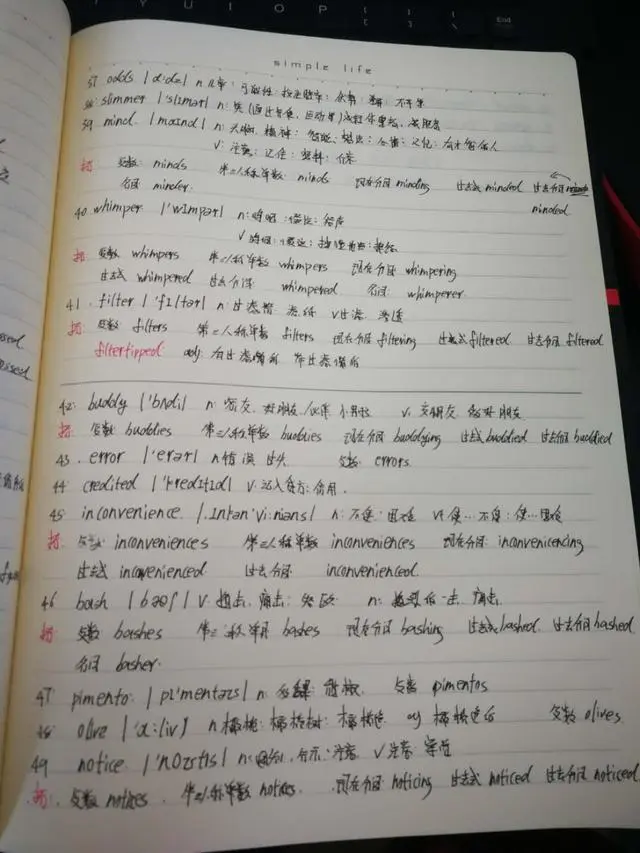 Y U I O P
End
simple life
37 odds | n. 几率: 可能性: 投注赔率:
38 slimmer | 'slɪmər | n:
39 mind. | maɪnd | n: 大脑: 精神: 智能: 想法:
v: 注意: 记住: 照料: 介意
扩: 复数: minds 第三人称单数: minds 现在分词 minding 过去式 minded 过去分词
名词 minder. minded
40 whimper | 'wɪmpər | n:
v
扩: 复数 whimpers 第三人称单数 whimpers 现在分词 whimpering
过去式 whimpered 过去分词: whimpered 名词: whimperer.
41. filter | 'fɪltər | n: 过滤器 滤纸 v 过滤 渗透
扩: 复数 filters 第三人称单数 filters 现在分词 filtering 过去式 filtered 过去分词 filtered
filtertipped adj: 有过滤嘴的
42: buddy | 'bʌdi | n: 密友. 好朋友. v: 交朋友 做好朋友
扩: 复数 buddies 第三人称单数: buddies 现在分词 buddying 过去式 buddied 过去分词 buddied
43. error | 'erər | n 错误 过失 复数: errors.
44 credited | 'kredɪtɪd | v: 记入贷方: 信用.
45 inconvenience. | n: 不便: 困难 vt 使…不便: 使…困难
扩: 复数: inconveniences 第三人称单数 inconveniences 现在分词: inconveniencing
过去式 inconvenienced 过去分词: inconvenienced.
46 bash | bæʃ | v: 猛击. 痛击: n:
扩: 复数 bashes 第三人称单数 bashes 现在分词 bashing 过去式 bashed. 过去分词 bashed
名词 basher.
47 pimento: | n: 复数 pimentos
48: olive | 'ɑ:lɪv | n 橄榄: 橄榄树: 橄榄色. adj 橄榄色的 复数 olives.
49 notice | 'noʊtɪs | n: 通知. 注意 v 注意:
扩: 复数 notices. 第三人称单数 notices. 现在分词 noticing 过去式 noticed 过去分词 noticed